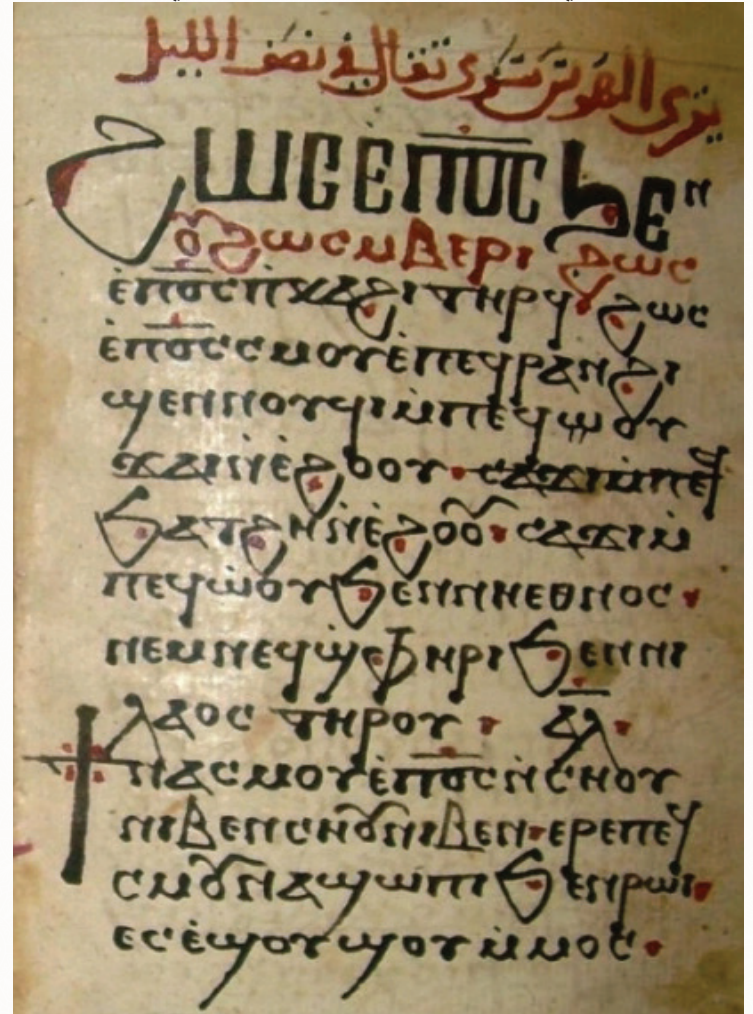 يقرى الهوس تقال في نصف الليل
Ϩⲱⲥ ⲉ̀ⲡⲟ̅ⲥ̅ ϧⲉⲛ
ⲟⲩϩⲱⲥ ⲙⲃⲉⲣⲓ ϩⲱⲥ
ⲉ̀ⲡⲟ̅ⲥ̅ ⲡ̀ⲕⲁϩⲓ ⲧⲏⲣϥ ϩⲱⲥ
ⲉ̀ⲡⲟ̅ⲥ̅ ⲥⲙⲟⲩ ⲉ̀ⲡⲉϥⲣⲁⲛ ϩⲓ
ϣⲉⲛⲛⲟⲩϥⲓ ⲙ̀ⲡⲉϥⲱⲟⲩ
ⲛ̀ⲉ̀ϩⲟⲟⲩ · ⲥⲁϫⲓ ⲙ̀ⲡⲉϥ
ϧⲁⲧϩⲏ ⲛ̀ⲉ̀ϩⲟⲟⲩ · ⲥⲁϫⲓ ⲙ̀
ⲡⲉϥⲱ̀ⲟⲩ ϧⲉⲛ ⲛⲓⲉⲑⲛⲟⲥ ·
ⲛⲉⲙ ⲛⲉϥϣⲫⲏⲣⲓ ϧⲉⲛ ⲛⲓ
ⲗⲁⲟⲥ ⲧⲏⲣⲟⲩ · ⲁ̅ⲗ̅ ·
ϯⲛⲁⲥⲙⲟⲩ ⲉ̀ⲡⲟ̅ⲥ̅ ⲛ̀ⲥⲏⲟⲩ
ⲛⲓⲃⲉⲛ ⲥⲏⲟⲩ ⲛⲓⲃⲉⲛ · ⲉⲣⲉ ⲡⲉϥ
ⲥⲙⲟⲩ ⲛⲁϣⲱⲡⲓ ϧⲉⲛ ⲣⲱⲓ ·
ⲉⲥⲉ̀ϣⲟⲩϣⲟⲩ ⲙ̀ⲙⲟⲥ ·